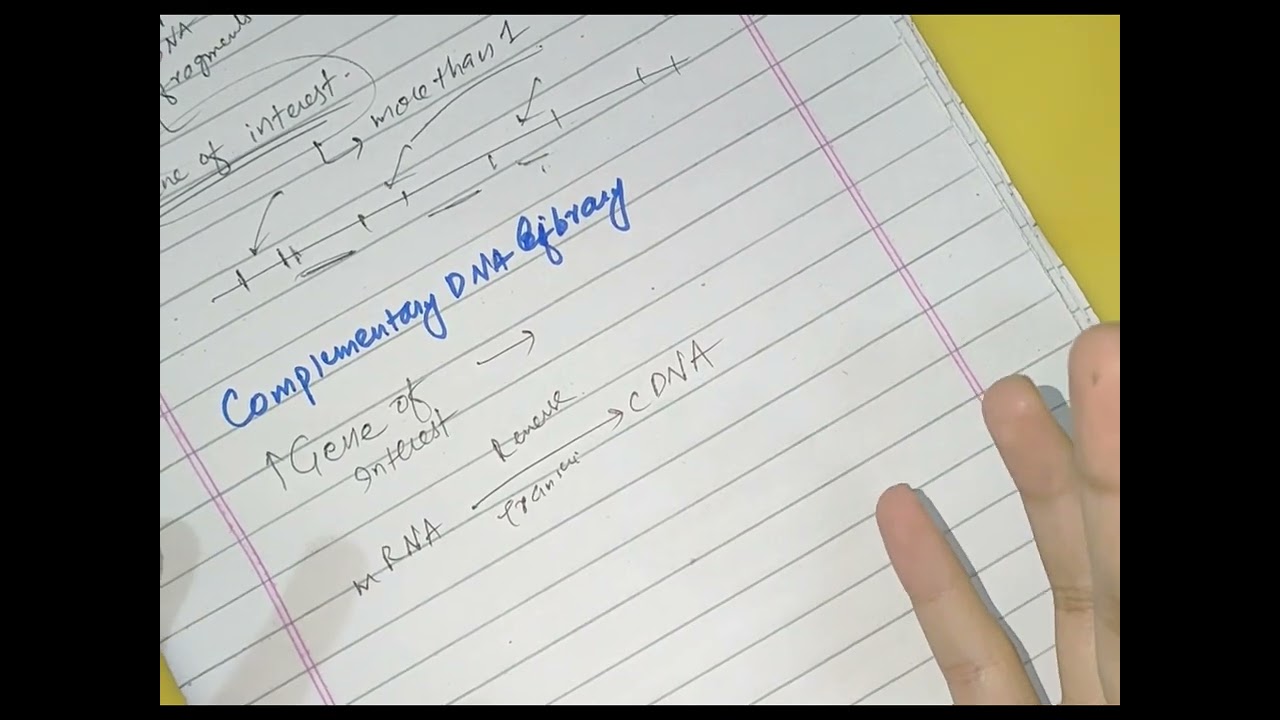 DNA
fragments
of interest.
↳ more than 1
Complementary DNA library
↑ Gene of →
Interest
Reverse
mRNA → cDNA